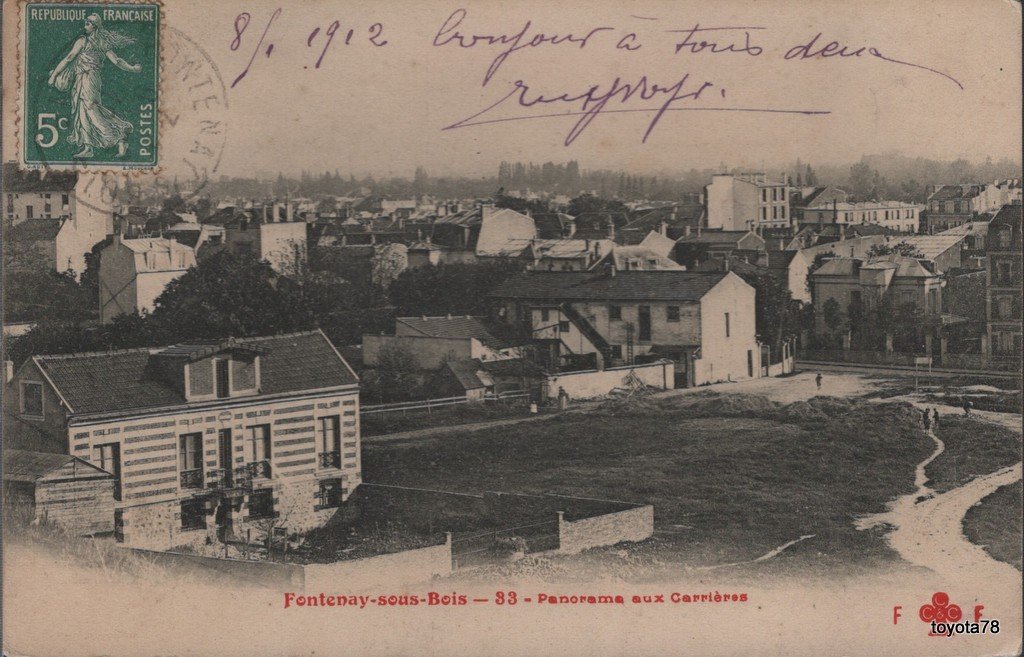 REPUBLIQUE FRANÇAISE
5c
POSTES
8/1 1912 Bonjour à tous deux
Fontenay-sous-Bois — 33 - Panorama aux Carrières
F C C C F
toyota78